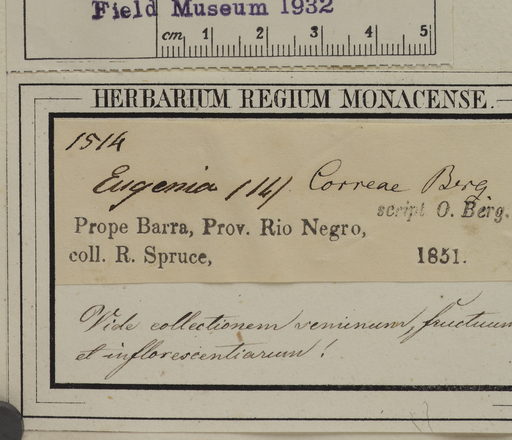 Field Museum 1932
cm 1 2 3 4 5
HERBARIUM REGIUM MONACENSE.
1514
Eugenia (14) Correae Berg
script O. Berg.
Prope Barra, Prov. Rio Negro,
coll. R. Spruce, 1851.
Vide collectionem seminum, fructuum
et inflorescentiarum!